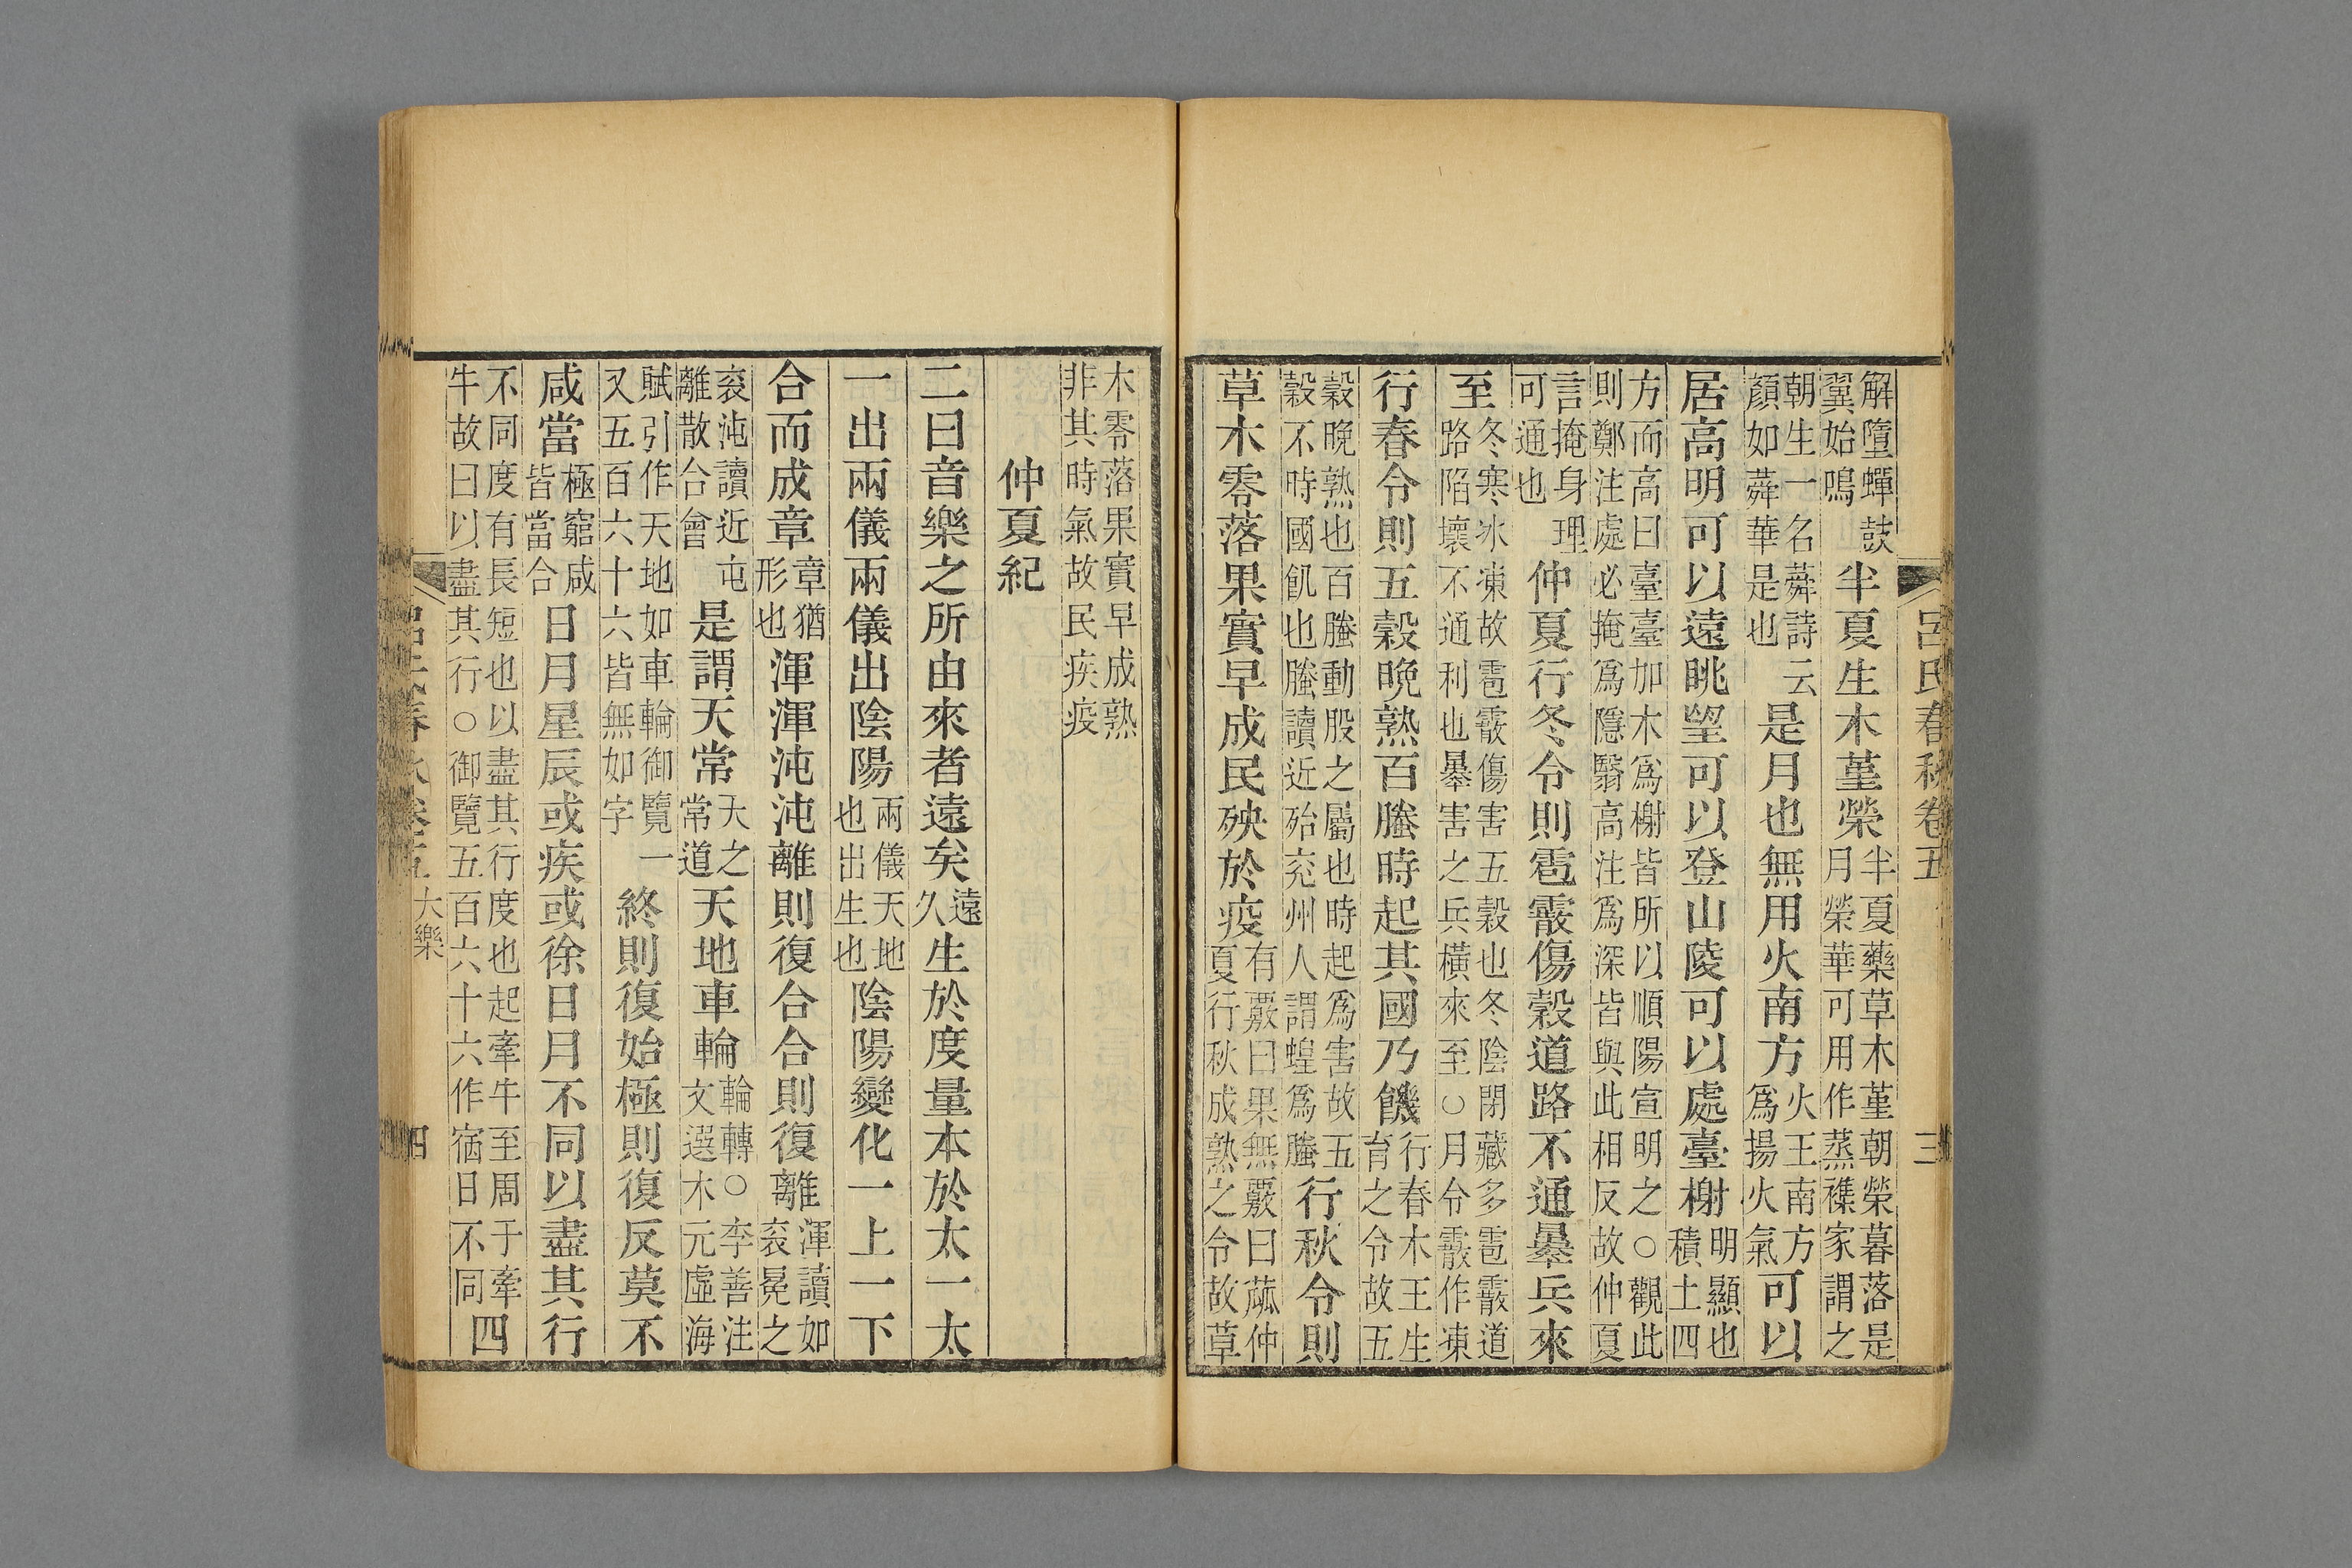 呂氏春秋卷五　三
解墮蟬鼓翼始鳴半夏生木堇榮半夏藥草木堇朝榮暮落是月榮華可用作蒸襍家謂之
朝生一名蕣詩云顏如蕣華是也是月也無用火南方火王南方爲揚火氣可以
居高明可以遠眺望可以登山陵可以處臺榭明顯也積土四
方而高曰臺臺加木爲榭皆所以順陽宣明之○觀此則鄭注處必掩爲隱翳高注爲深皆與此相反故仲夏
言掩身理可通也仲夏行冬令則雹霰傷穀道路不通暴兵來
至冬寒冰凍故雹霰傷害五穀也冬陰閉藏多雹霰道路陷壞不通利也暴害之兵橫來至○月令霰作凍
行春令則五穀晚熟百螣時起其國乃饑行春木王生育之令故五
穀晚熟也百螣動股之屬也時起爲害故五穀不時國飢也螣讀近殆兖州人謂蝗爲螣行秋令則
草木零落果實早成民殃於疫有覈曰果無覈曰蓏仲夏行秋成熟之令故草
木零落果實早成熟非其時氣故民疾疫
仲夏紀
二曰音樂之所由來者遠矣遠久生於度量本於太一太
一出兩儀兩儀出陰陽兩儀天地也出生也陰陽變化一上一下
合而成章章猶形也渾渾沌沌離則復合合則復離渾讀如衮冕之
衮沌讀近屯離散合會是謂天常天之常道天地車輪輪轉○李善注文選木元虛海
賦引作天地如車輪御覽一又五百六十六皆無如字終則復始極則復反莫不
咸當極窮咸皆當合日月星辰或疾或徐日月不同以盡其行
不同度有長短也以盡其行度也起牽牛至周于牽牛故曰以盡其行○御覽五百六十六作宿日不同四
呂氏春秋卷五　大樂　四